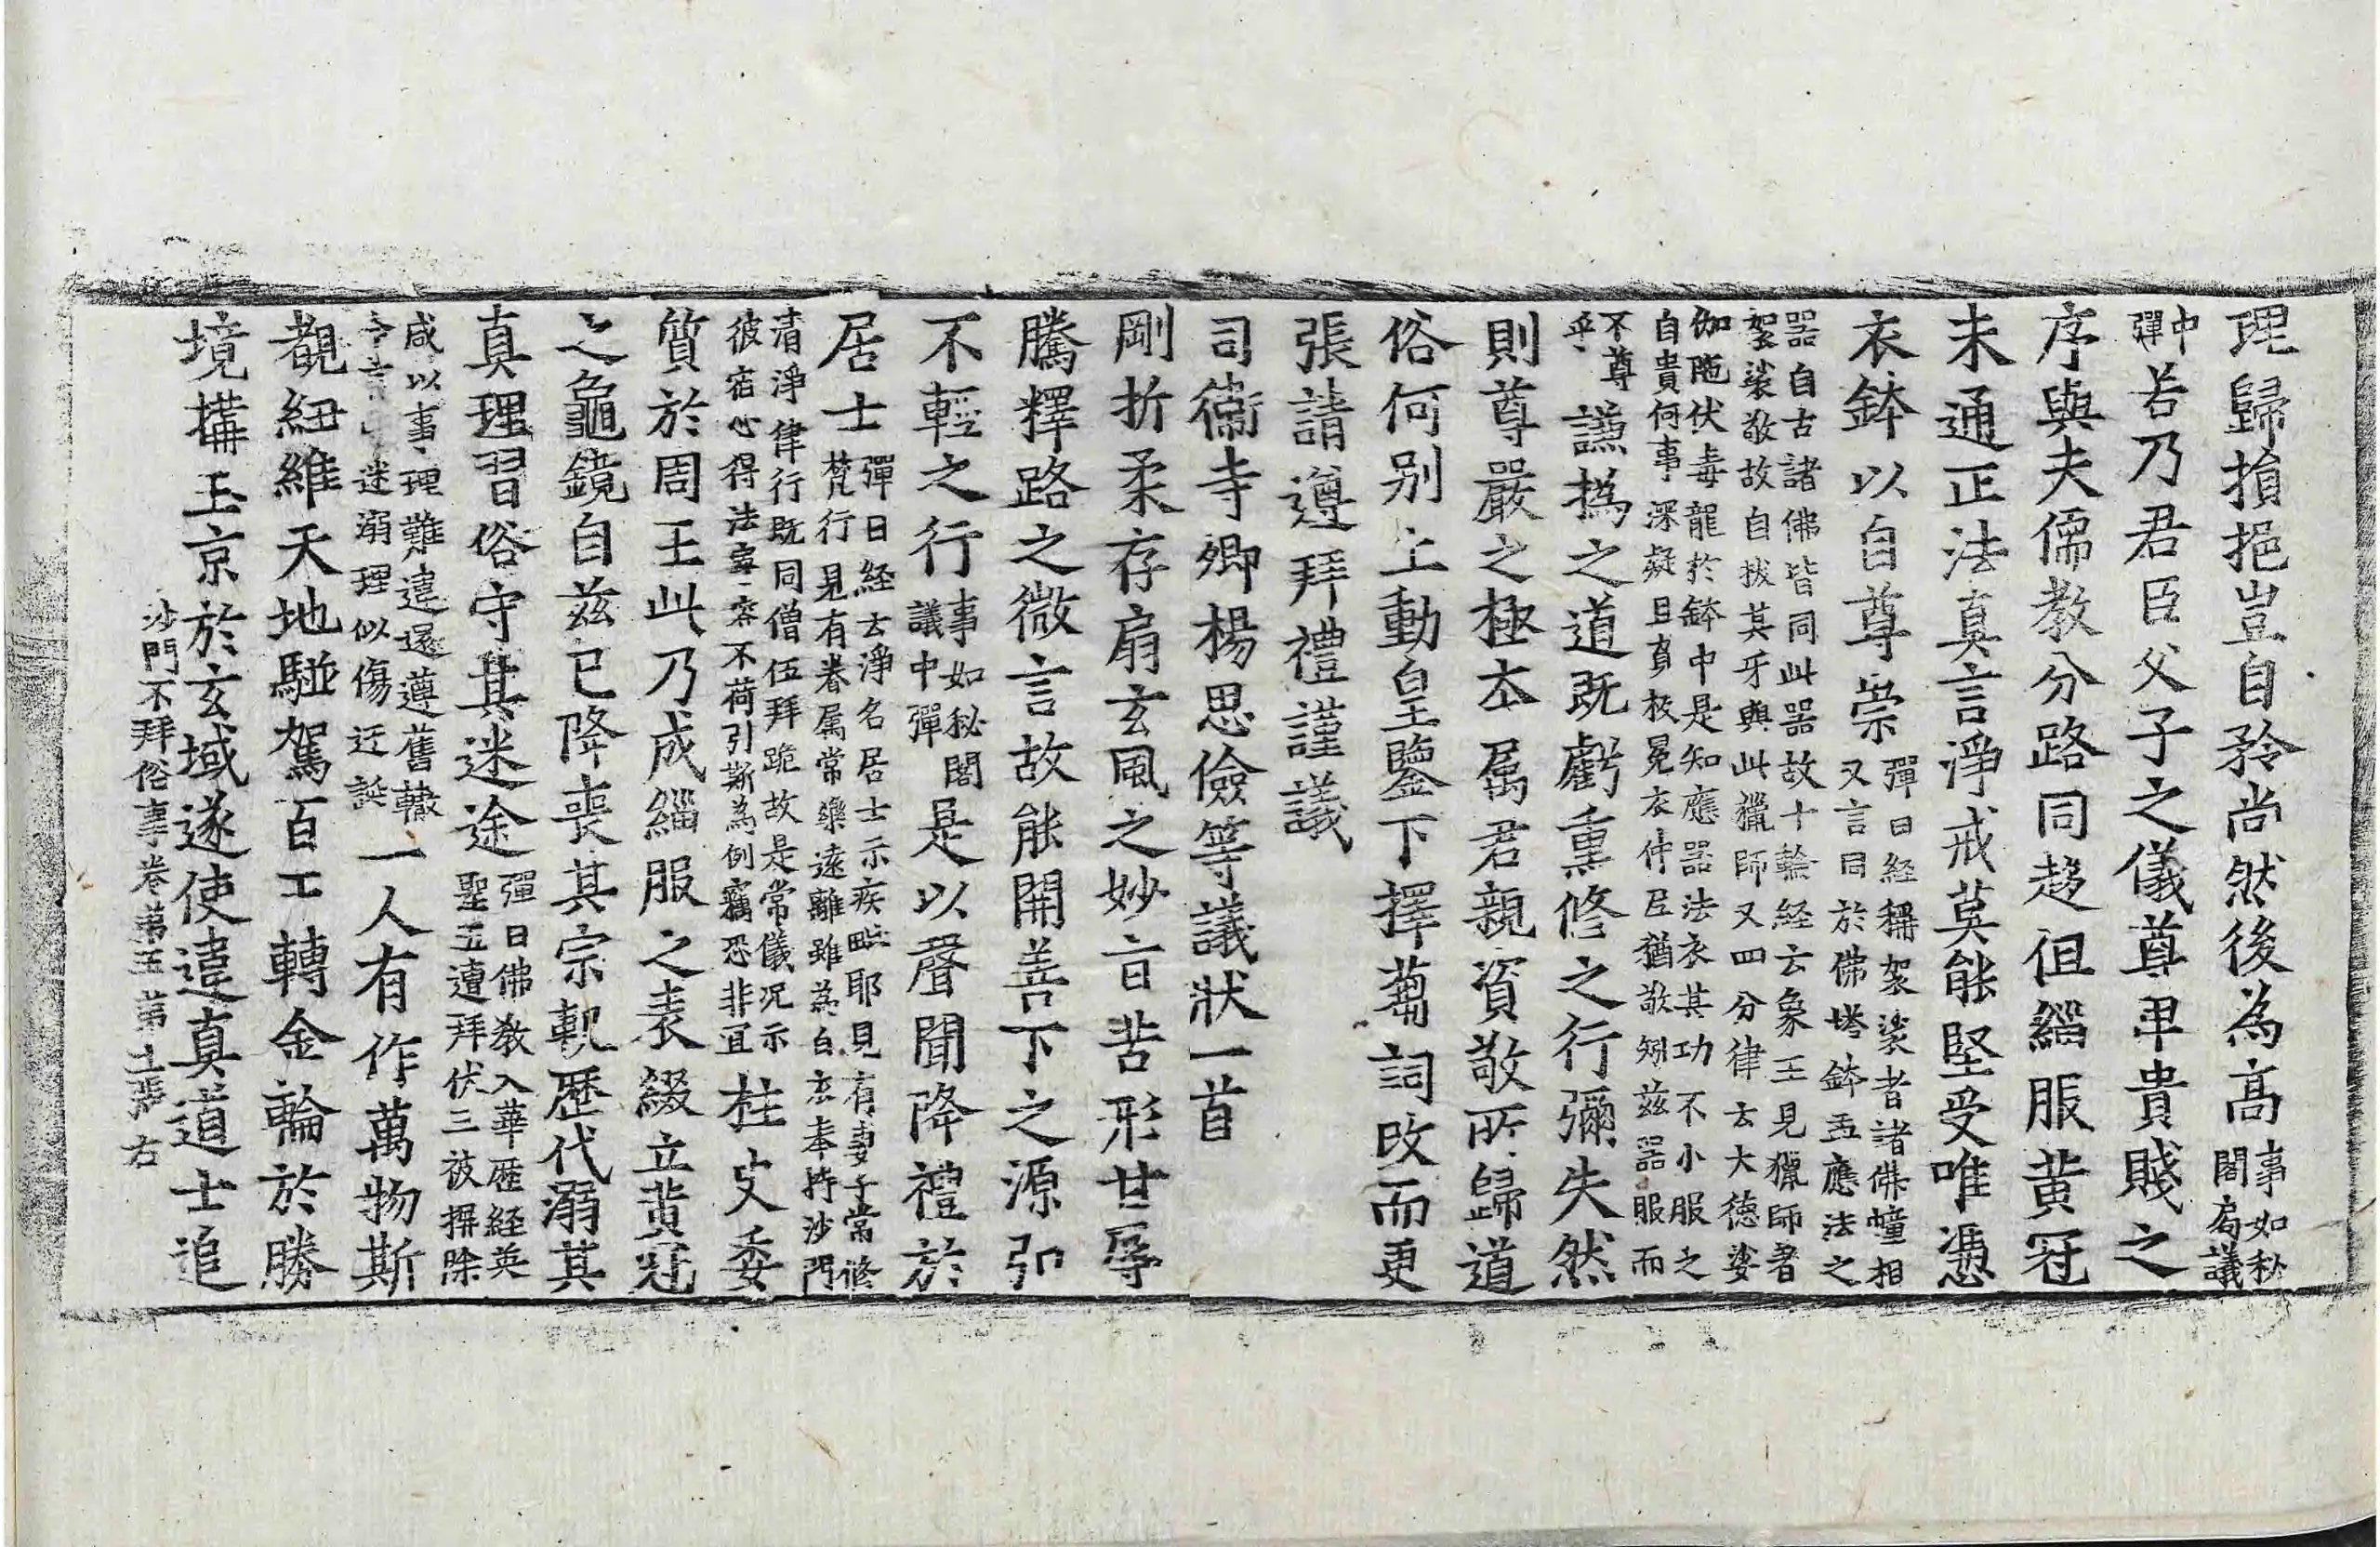 理歸損挹豈自矜尚然後為高事如秘閣局議
中彈若乃君臣父子之儀尊卑貴賤之
序與夫儒教分路同趍但緇服黃冠
未通正法真言淨戒莫能堅受唯憑
衣鉢以自尊崇彈曰経稱袈裟者諸佛幢相又言同於佛塔鉢盂應法之
器自古諸佛皆同此器故十輪経云象王見獵師著袈裟敬故自拔其牙與此獵師又四分律云大德娑
伽陁伏毒龍於鉢中是知應器法衣其功不小服之自貴何事深疑且負扆冕衣仲尼猶敬矧兹器服而
不尊乎謙撝之道既虧熏修之行彌失然
則尊嚴之極本屬君親資敬所歸道
俗何别上動皇鑒下擇蒭詞改而更
張請遵拜禮謹議
司衛寺卿楊思儉等議狀一首
剛折柔存扇玄風之妙旨苦形甘辱
騰釋路之微言故能開善下之源弘
不輕之行事如秘閣議中彈是以聲聞降禮於
居士彈曰経云淨名居士示疾毗耶見有妻子常修梵行見有眷属常樂遠離雖為白衣奉持沙門
清淨律行既同僧伍拜跪故是常儀況示彼宿心得法寧容不荷引斯為例竊恐非宜柱史委
質於周王此乃成緇服之表綴立黃冠
之龜鏡自兹已降喪其宗軌歷代溺其
真理習俗守其迷途彈曰佛教入華歷経英聖五遭拜伏三被摒除
咸以事理難違還遵舊轍迷溺理似傷迂誕一人有作萬物斯
覩紐維天地驅駕百工轉金輪於勝
境搆玉京於玄域遂使違真道士追
沙門不拜俗事卷第五第十張右